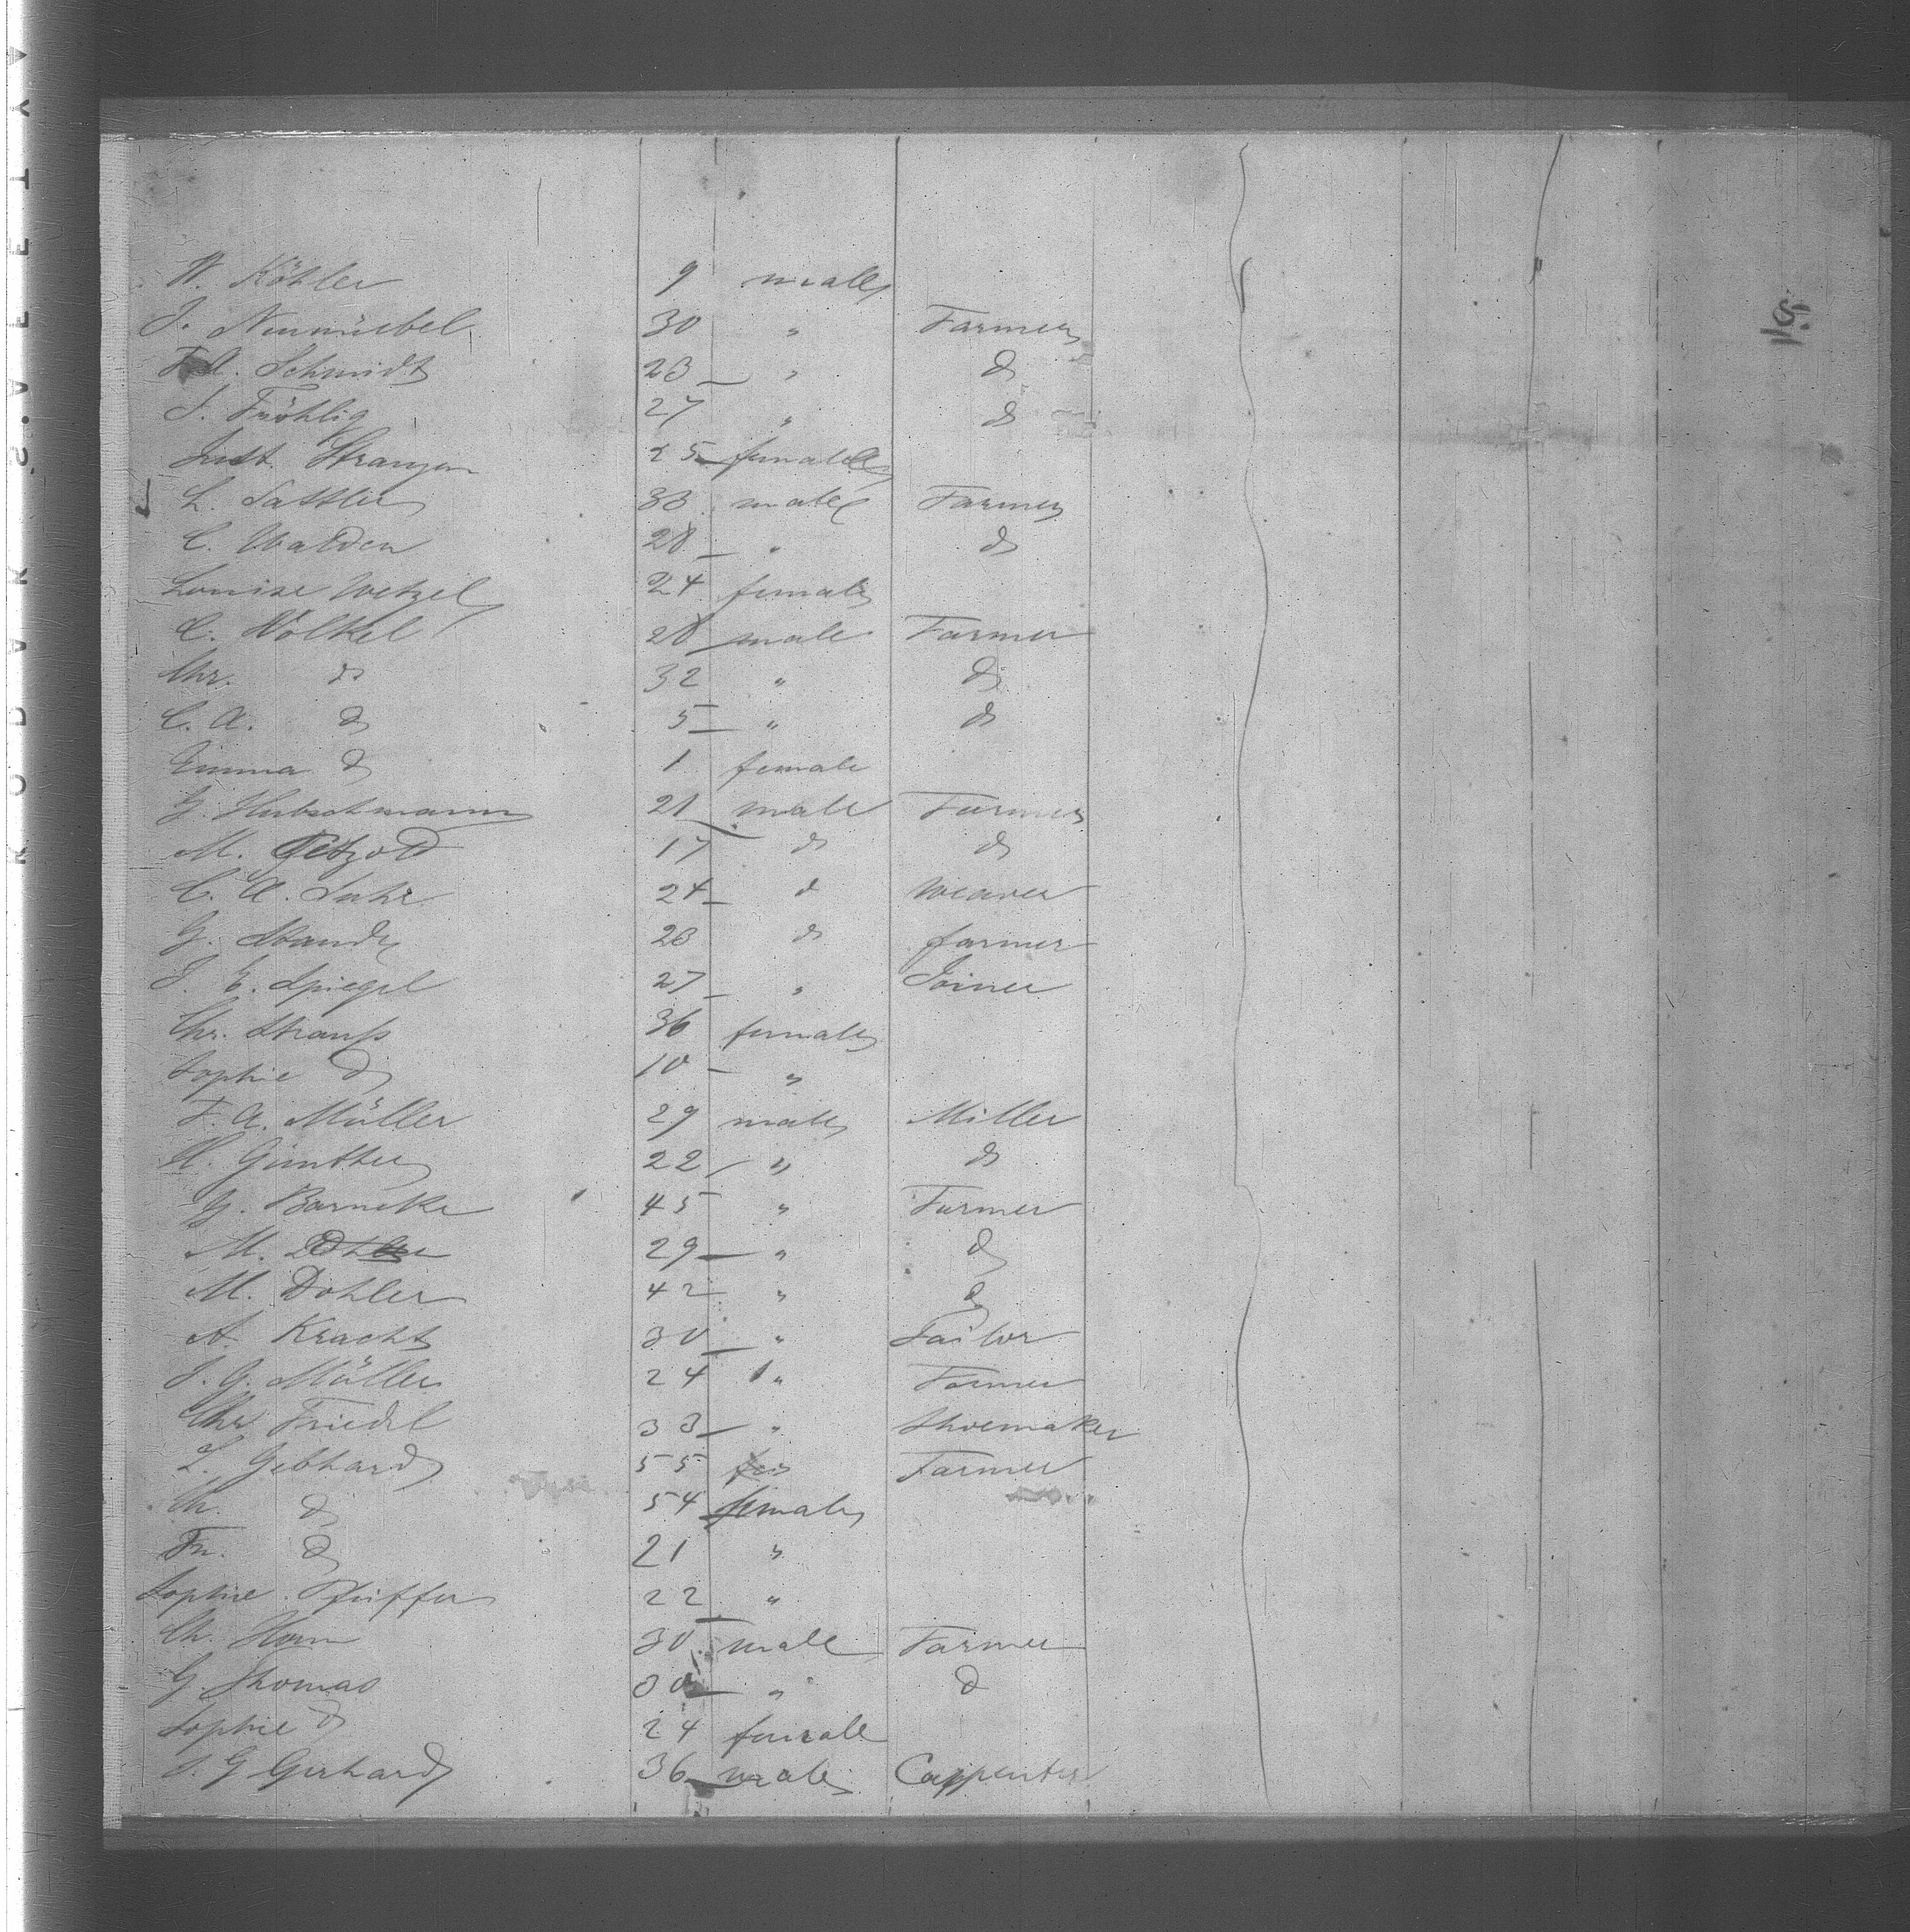 W. Köhler 9 male
J. Neumüebel 30 " Farmer
F. A. Schmidt 23 " d
J. Fröhlig 27 " d
Just. Strangen 25 female
L. Sattler 33 male Farmer
C. Walden 28 " d
Louise Wetzel 24 female
C. Wölkel 28 male Farmer
Chr. d 32 " d
C. A. d 5 " d
Emma d 1 female
G. Hubschmann 21 male Farmer
M. Petzold 17 d d
C. A. Suhr 24 d weaver
G. 23 d farmer
J. E. Spiegel 27 " Joiner
Chr. Strauß 36 female
Sophie d 10 "
F. A. Müller 29 male Miller
H. Günther 22 " d
G. Barneke 45 " Farmer
M. 29 " d
M. Dohler 42 " d
A. Kracht 30 " Tailor
J. G. Müller 24 " Farmer
Chr. Friedel 33 " Shoemaker
L. Gebhard 55 Farmer
Ch. d 54 female
Fr. d 21 "
Sophie Pfeiffer 22 "
Ch. Horn 30 male Farmer
G. Thomas 30 " d
Sophie d 24 female
J. G Gerhard 36 male Carpenter
KODAK SAFETY